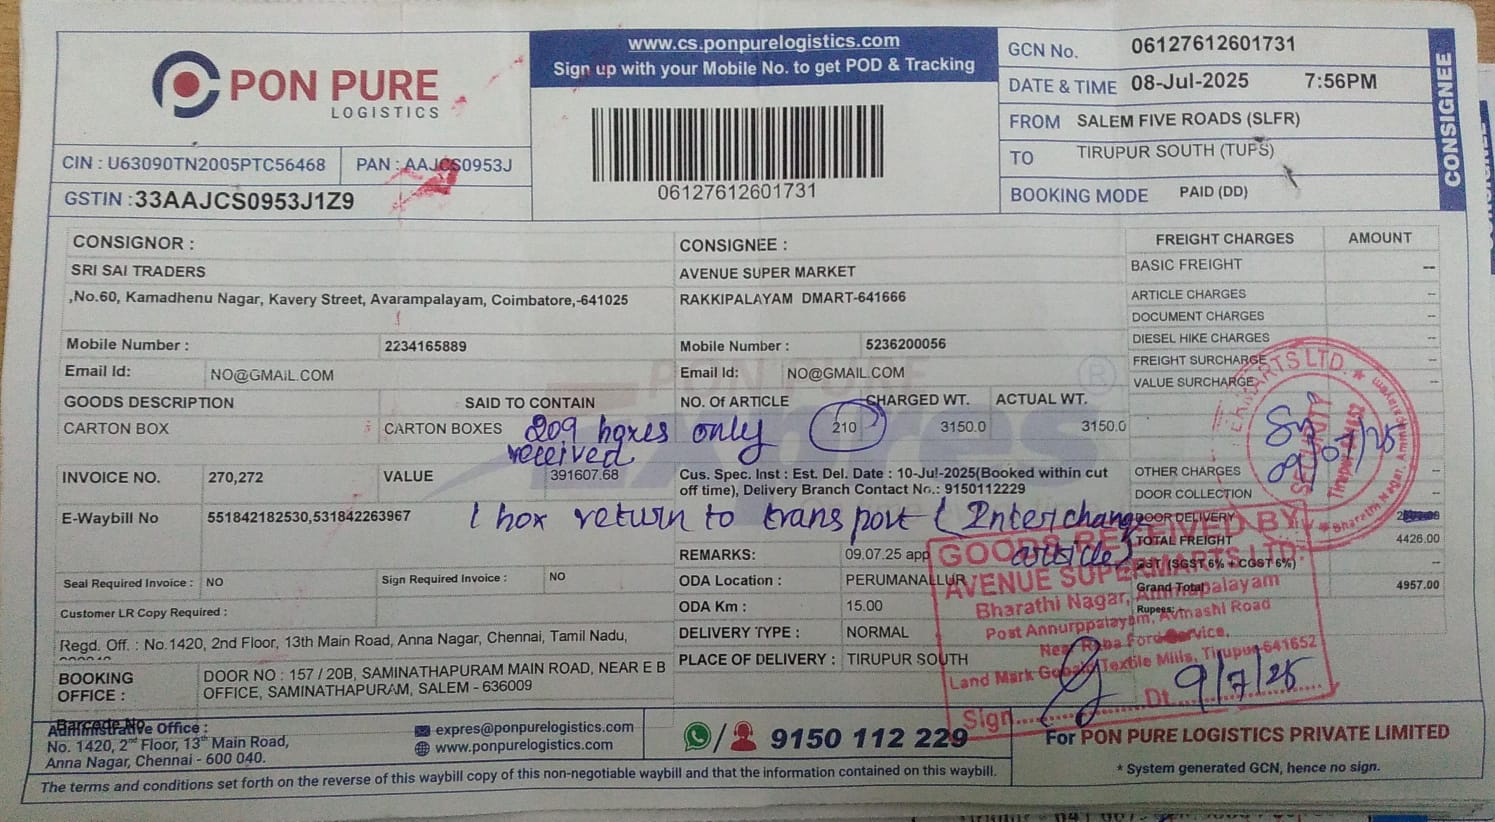 PON PURE
LOGISTICS
www.cs.ponpurelogistics.com
Sign up with your Mobile No. to get POD & Tracking
06127612601731
GCN No. 06127612601731
DATE & TIME 08-Jul-2025 7:56PM
FROM SALEM FIVE ROADS (SLFR)
TO TIRUPUR SOUTH (TUPS)
BOOKING MODE PAID (DD)
CONSIGNEE
CIN : U63090TN2005PTC56468 PAN : AAJCS0953J
GSTIN : 33AAJCS0953J1Z9
CONSIGNOR :
SRI SAI TRADERS
,No.60, Kamadhenu Nagar, Kavery Street, Avarampalayam, Coimbatore,-641025
Mobile Number : 2234165889
Email Id: NO@GMAIL.COM
CONSIGNEE :
AVENUE SUPER MARKET
RAKKIPALAYAM DMART-641666
Mobile Number : 5236200056
Email Id: NO@GMAIL.COM
GOODS DESCRIPTION SAID TO CONTAIN NO. Of ARTICLE CHARGED WT. ACTUAL WT.
CARTON BOX CARTON BOXES 210 3150.0 3150.0
209 boxes only
received
INVOICE NO. 270,272 VALUE 391607.68
Cus. Spec. Inst : Est. Del. Date : 10-Jul-2025(Booked within cut
off time), Delivery Branch Contact No.: 9150112229
E-Waybill No 551842182530,531842263967
1 box return to transport (Interchange
article)
REMARKS: 09.07.25 app
Seal Required Invoice : NO Sign Required Invoice : NO
ODA Location : PERUMANALLUR
Customer LR Copy Required :
ODA Km : 15.00
Regd. Off. : No.1420, 2nd Floor, 13th Main Road, Anna Nagar, Chennai, Tamil Nadu,
DELIVERY TYPE : NORMAL
BOOKING OFFICE : DOOR NO : 157 / 20B, SAMINATHAPURAM MAIN ROAD, NEAR E B
OFFICE, SAMINATHAPURAM, SALEM - 636009
PLACE OF DELIVERY : TIRUPUR SOUTH
FREIGHT CHARGES AMOUNT
BASIC FREIGHT --
ARTICLE CHARGES --
DOCUMENT CHARGES --
DIESEL HIKE CHARGES --
FREIGHT SURCHARGE --
VALUE SURCHARGE --
OTHER CHARGES --
DOOR COLLECTION --
DOOR DELIVERY
TOTAL FREIGHT 4426.00
GST (SGST 6% + CGST 6%) --
Grand Total 4957.00
Rupees:
SECURITY
Tirupur
09/07/25
GOODS RECEIVED BY
AVENUE SUPERMARTS LTD.
Bharathi Nagar, Ammapalayam
Post Annurppalayam, Avinashi Road
Near Raba Ford Service,
Land Mark Gopald Textile Mills, Tirupur-641652
Sign Dt 9/7/25
Barcode No
Administrative Office :
No. 1420, 2nd Floor, 13th Main Road,
Anna Nagar, Chennai - 600 040.
expres@ponpurelogistics.com
www.ponpurelogistics.com
9150 112 229
For PON PURE LOGISTICS PRIVATE LIMITED
* System generated GCN, hence no sign.
The terms and conditions set forth on the reverse of this waybill copy of this non-negotiable waybill and that the information contained on this waybill.